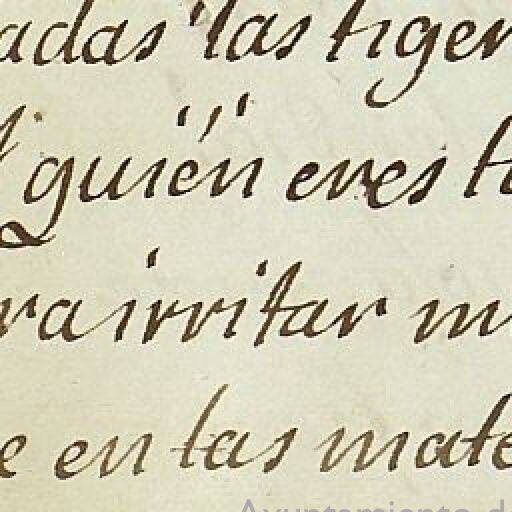 adas las tiger
guién eres t
ra irritar m
e en las mate
Ayuntamiento d